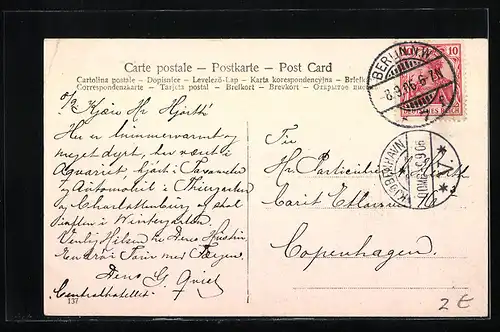 Carte postale – Postkarte – Post Card
Cartolina postale – Dopisnice – Levelező-Lap – Karta korespondencyjna – Briefk
Correspondenzkarte – Tarjeta postal – Brefkort – Brevkort – Открытое пис
BERLIN N.W.
8.9.06.6-7N.
10
DEUTSCHES REICH
KJØBENHAVN
9.9.06
8/9 Kjære Hr Hjorth
Her er lummervarmt og
meget dyrt, har været i
Aquariet, kjørt i Taxameter
og Automobil i Thiergarten
og Charlottenburg og skal
iaften i Wintergarten
Venlig Hilsen til Deres Hustru
Deres G.
Centralhotellet.
Til
Hr Particulier Hjorth
Carit Etlarsvej
Copenhagen.
137
2 €